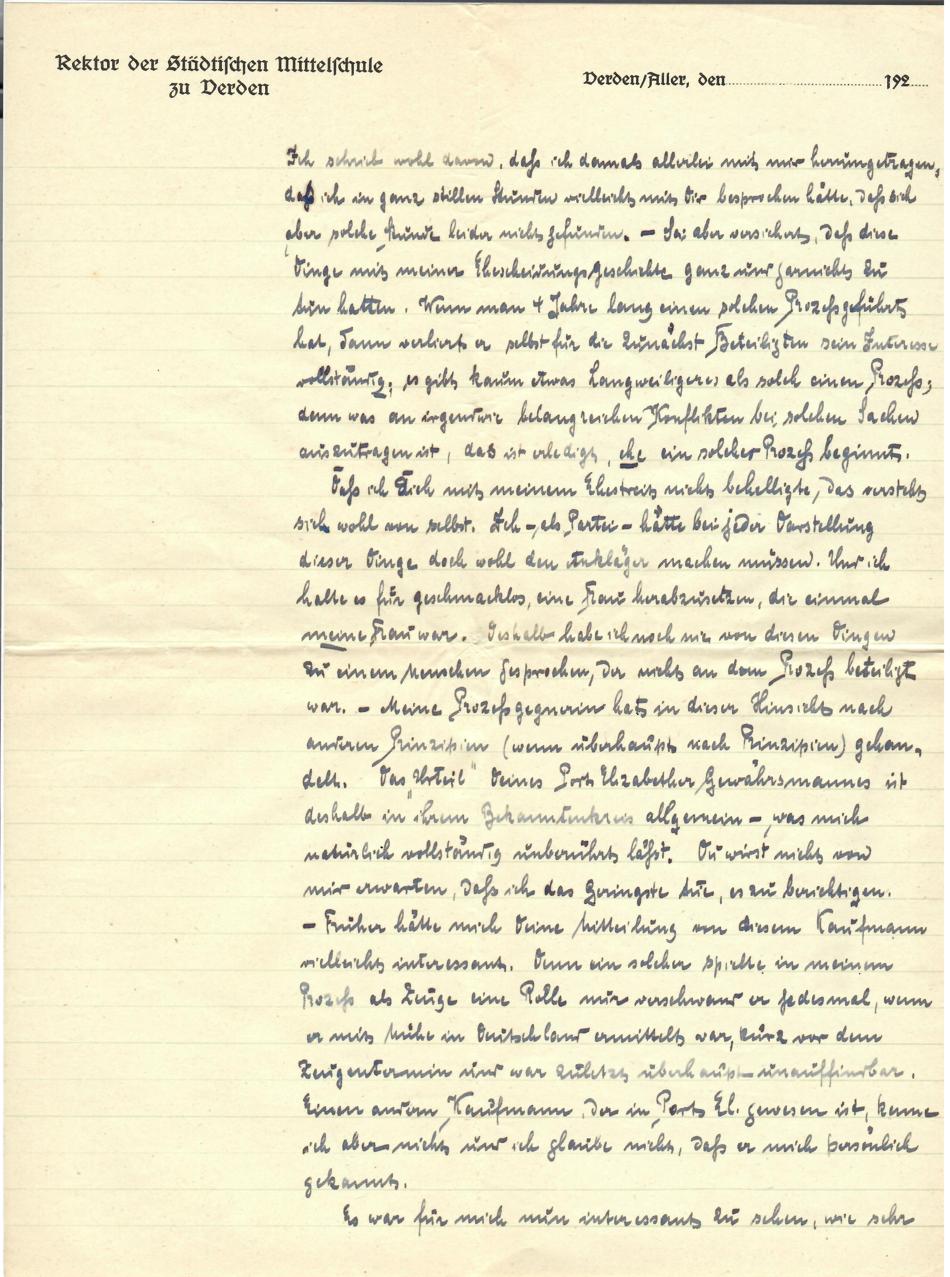 Rektor der Städtischen Mittelschule
zu Verden
Verden/Aller, den 192
Ich schrieb wohl davon, dass ich damals allerlei mit mir herumgetragen,
daß ich in ganz stillen Stunden vielleicht mit Dir besprochen hätte, dass sich
aber solche Stunde leider nicht gefunden. – Sei aber versichert, dass diese
Dinge mit meiner Ehescheidungsgeschichte ganz und garnichts zu
tun hatten. Wenn man 4 Jahre lang einen solchen Prozess geführt
hat, dann verliert er selbst für die zunächst Beteiligten sein Interesse
vollständig; es gibt kaum etwas Langweiligeres als solch einen Prozess;
denn was an irgendwie belangreichen Konflikten bei solchen Sachen
auszutragen ist, das ist erledigt, ehe ein solcher Prozess beginnt.
Dass ich Dich mit meinem Ehestreit nicht behelligte, das versteht
sich wohl von selbst. Ich – als Partei – hätte bei jeder Darstellung
dieser Dinge doch wohl den Ankläger machen müssen. Und ich
halte es für geschmacklos, eine Frau herabzusetzen, die einmal
meine Frau war. Deshalb habe ich noch nie von diesen Dingen
zu einem Menschen gesprochen, der nicht an dem Prozess beteiligt
war. – Meine Prozessgegnerin hat in dieser Hinsicht nach
anderen Prinzipien (wenn überhaupt nach Prinzipien) gehan-
delt. Das „Urteil" Deines Port Elizabether Gewährsmannes ist
deshalb in ihrem Bekanntenkreis allgemein –, was mich
natürlich vollständig unberührt lässt. Du wirst nicht von
mir erwarten, dass ich das Geringste tue, es zu berichtigen.
– Früher hätte mich Deine Mitteilung von diesem Kaufmann
vielleicht interessant. Denn ein solcher spielte in meinem
Prozess als Zeuge eine Rolle nur verschwand er jedesmal, wenn
er mit Mühe in Deutschland ermittelt war, kurz vor dem
Zeugentermin und war zuletzt überhaupt unauffindbar.
Einen andern Kaufmann, der in Port El. gewesen ist, kenne
ich aber nicht und ich glaube nicht, dass er mich persönlich
gekannt.
Es war für mich nun interessant zu sehen, wie sehr